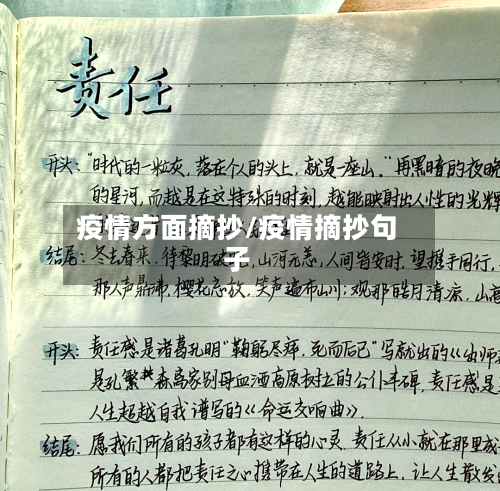 责任
开头："时代的一粒灰，落在个人的头上，就是一座山。"再黑暗的夜晚
的星河，而越是在这特殊的时刻，越能映射出人性的光辉
疫情方面摘抄/疫情摘抄句
子
结尾：冬去春来，待黎明破晓，山河无恙，人间皆安时，望携手同行，
那人声鼎沸，樱花忘故，笑声遍布山川；观那皓月清凉，山高
开头：责任感是诸葛孔明"鞠躬尽瘁，死而后已"写就出的《出师
是孔繁森离家别母血洒高原树立的公仆丰碑，责任感是
人生超越自我谱写的《命运交响曲》。
结尾：愿我们所有的孩子都有这样的心灵，责任从小就在那里成
所有的人都把责任之心携带在人生的道路上，让人生散发